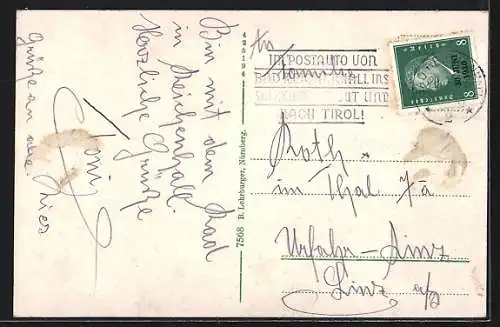 Bin mit dem Rad
in Reichenhall.
Herzliche Grüße
Toni
Grüße an alle
423194
7568 B. Lehrburger, Nürnberg.
IM POSTAUTO VON
BAD REICHENHALL INS
UND
NACH TIROL!
8 8
Deutsches
An
Familie
Roth
im Thal 7a
Urfahr-Linz
Linz a/D